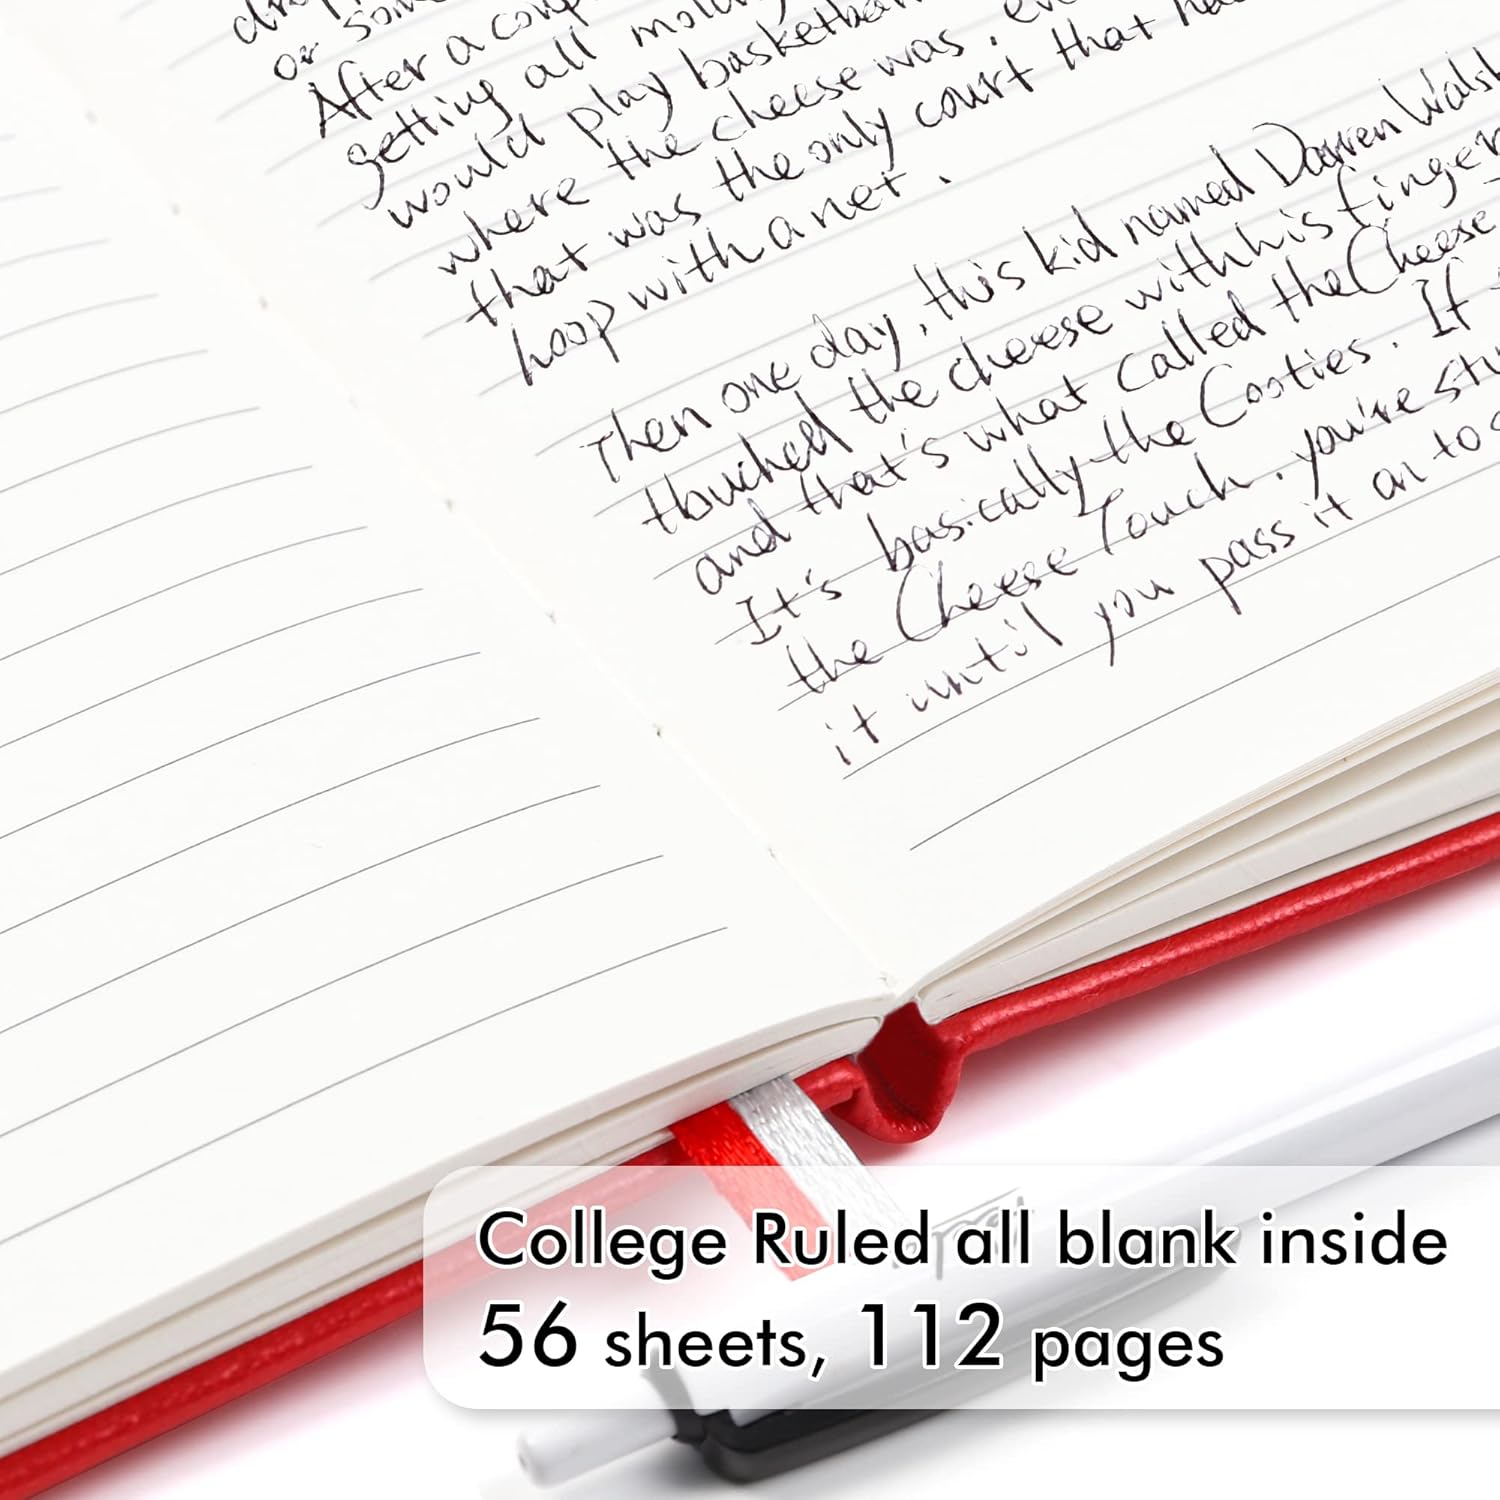 or som
After a coup
getting all mold
would play basketba
where the cheese was. ev
that was the only court that ha
hoop with a net.
Then one day, this kid named Darren Walsh
touched the cheese with his finger
and that's what called the Cheese
It's basically the Cooties. If
the Cheese Touch. you're stu
it until you pass it on to s
College Ruled all blank inside
56 sheets, 112 pages